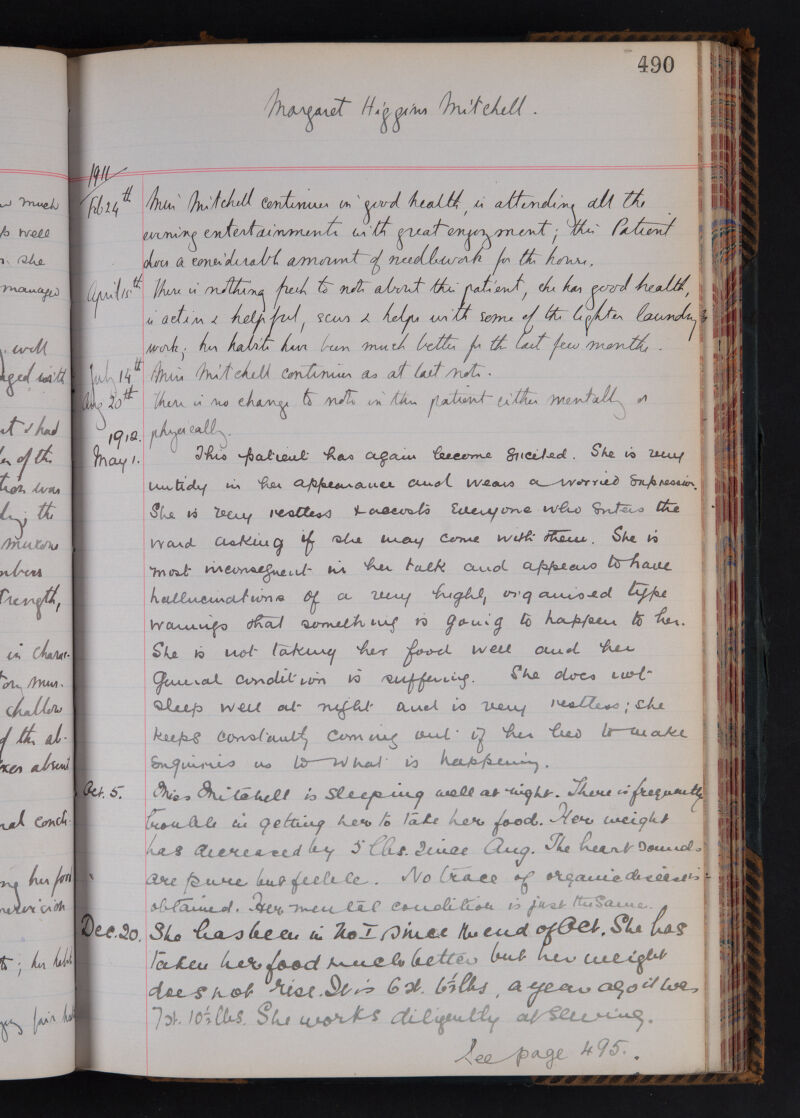 490
Margaret Higgins Mitchell.
1911
Feb 24th Miss Mitchell continues in good health, is attending all the
evening entertainments with great enjoyment; this Patient
does a considerable amount of needlework for the house.
April 15th There is nothing fresh to note about this patient, she has good health,
is active & helpful, sews & helps with some of the lighter laundry
work; her habits have been much better for the last few months.
July 14th Miss Mitchell continues as at last note.
Aug 20th There is no change to note in this patient either mentally or
physically.
1912.
May 1. This patient has again become excited. She is very
untidy in her appearance and wears a worried expression.
She is very restless & accosts everyone who enters the
ward asking if she may come with them. She is
most inconsequent in her talk and appears to have
hallucinations of a very highly organised type
warnings that something is going to happen to her.
She is not taking her food well and her
general condition is suffering. She does not
sleep well at night and is very restless; she
keeps constantly coming out of her bed to make
enquiries as to what is happening.
Oct. 5. Miss Mitchell is sleeping well at night. There is frequently
trouble in getting her to take her food. Her weight
has decreased by 5 lbs. since Aug. The heart sounds
are pure but feeble. No trace of organic disease is
obtained. Her mental condition is just the same.
Dec. 20. She has been in No I, since the end of Oct. She has
taken her food much better but her weight
does not rise. It is 6 st. 6½ lbs, a year ago it was
7 st. 10½ lbs. She works diligently at sewing.
See page 495.
much
well
she
manage
well
had
of the
was
the
in
her food
her habit